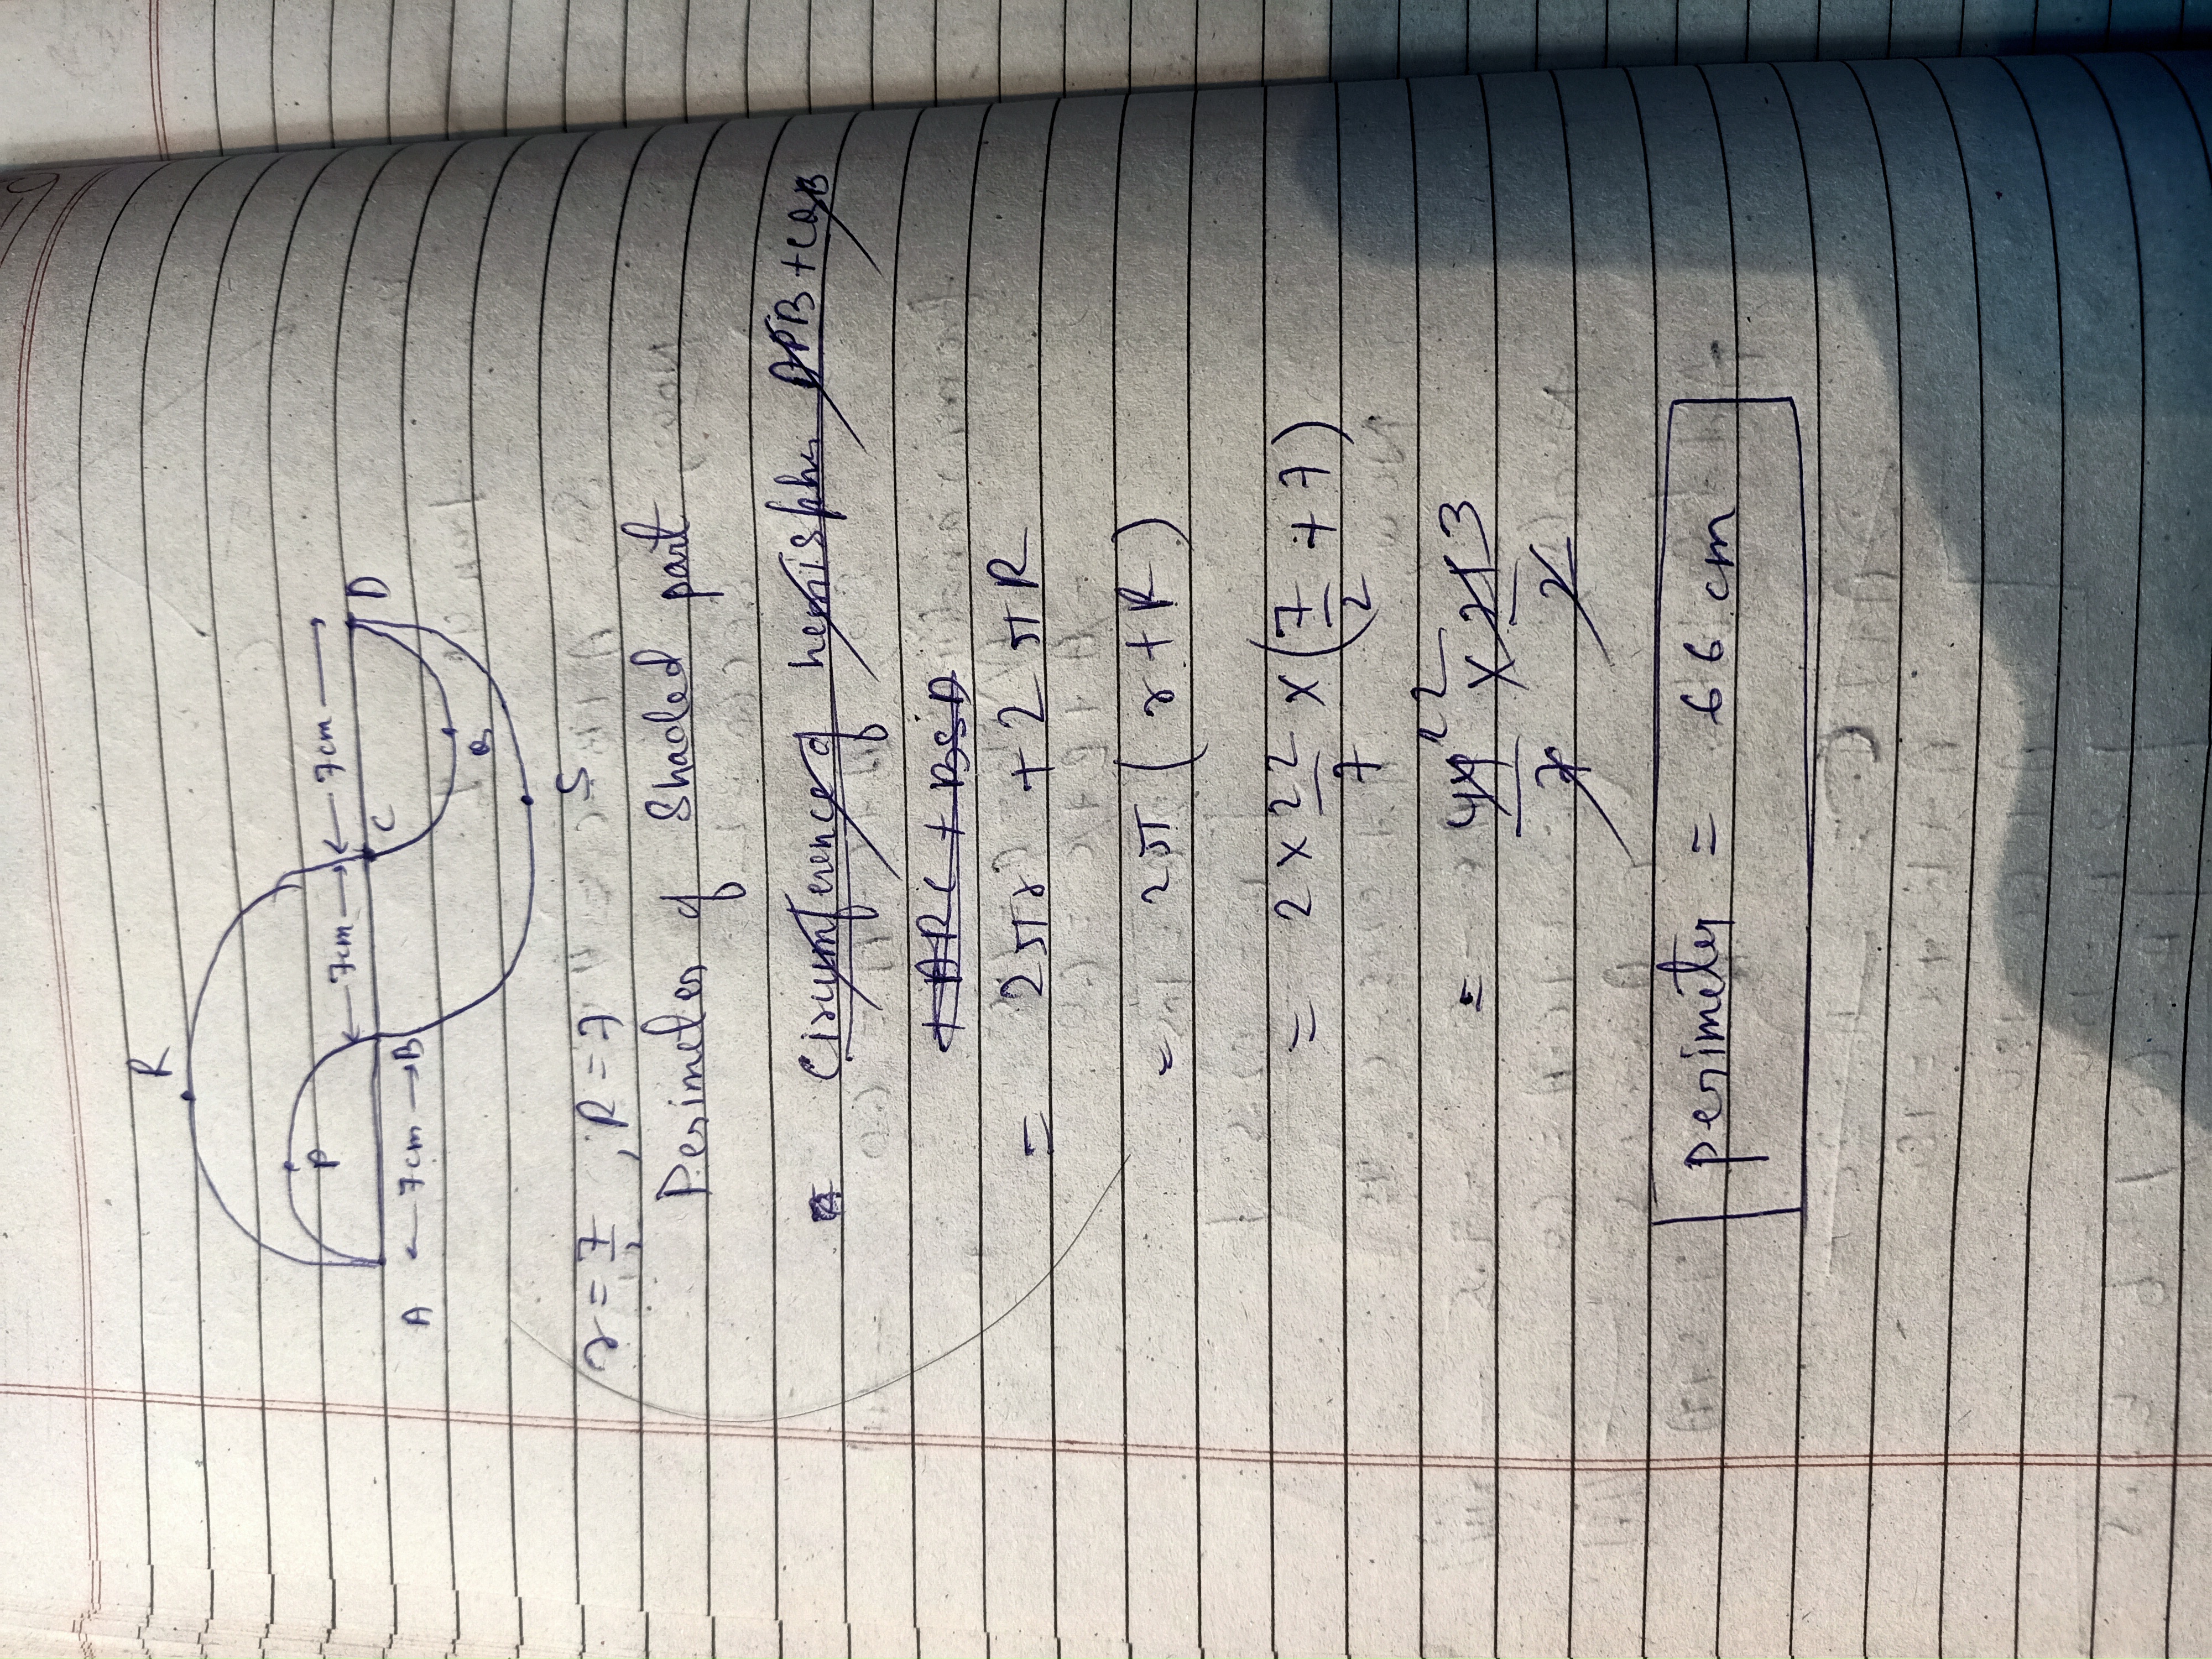 R
P
7cm
7cm
A
7cm
B
C
D
Q
S
r = 7/2, R = 7
Perimeter of Shaded part
Circumference of hemisphere APB + CQB
+ ARC + BSD
= 2πr + 2πR
= 2π (r + R)
= 2 × 22/7 × (7/2 + 7)
= 44/7 × 21/2
22 3
perimeter = 66 cm